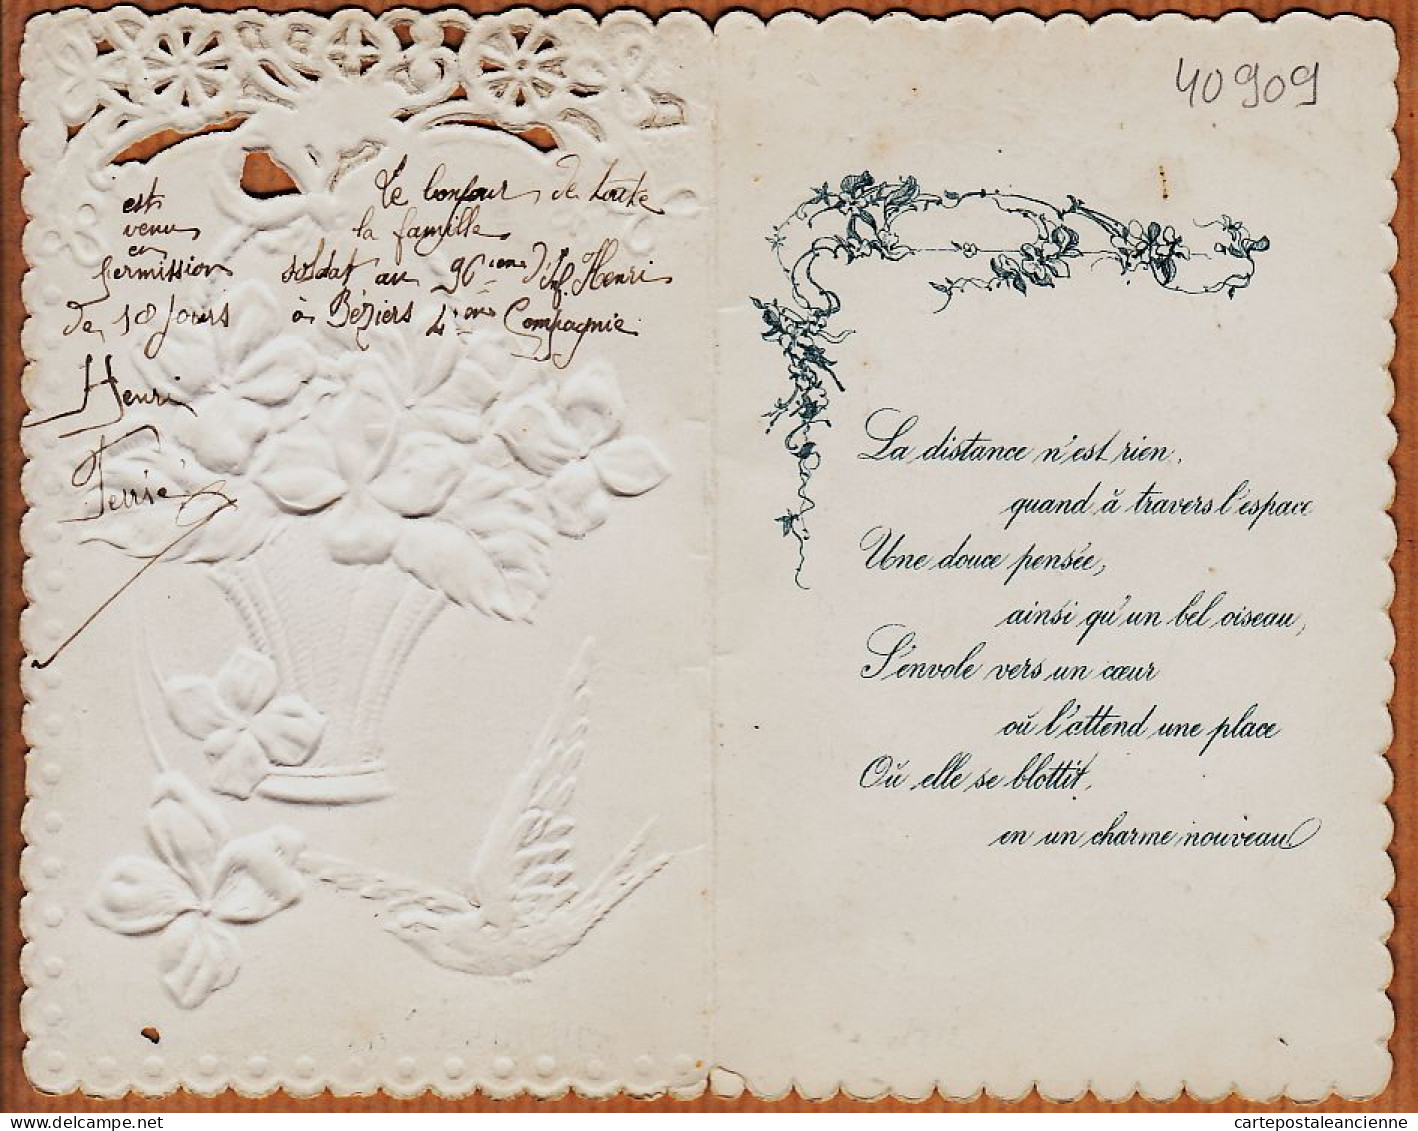 40909
Le bonjour de toute
la famille
est
venu
en
permission
de 18 jours
soldat au 96ième d'Inf. Henri
à Béziers 4ème Compagnie
Henri
Ferrié
La distance n'est rien,
quand à travers l'espace
Une douce pensée,
ainsi qu'un bel oiseau,
S'envole vers un cœur
où l'attend une place
Où elle se blottit,
en un charme nouveau
delcampe.net
cartepostaleancienne